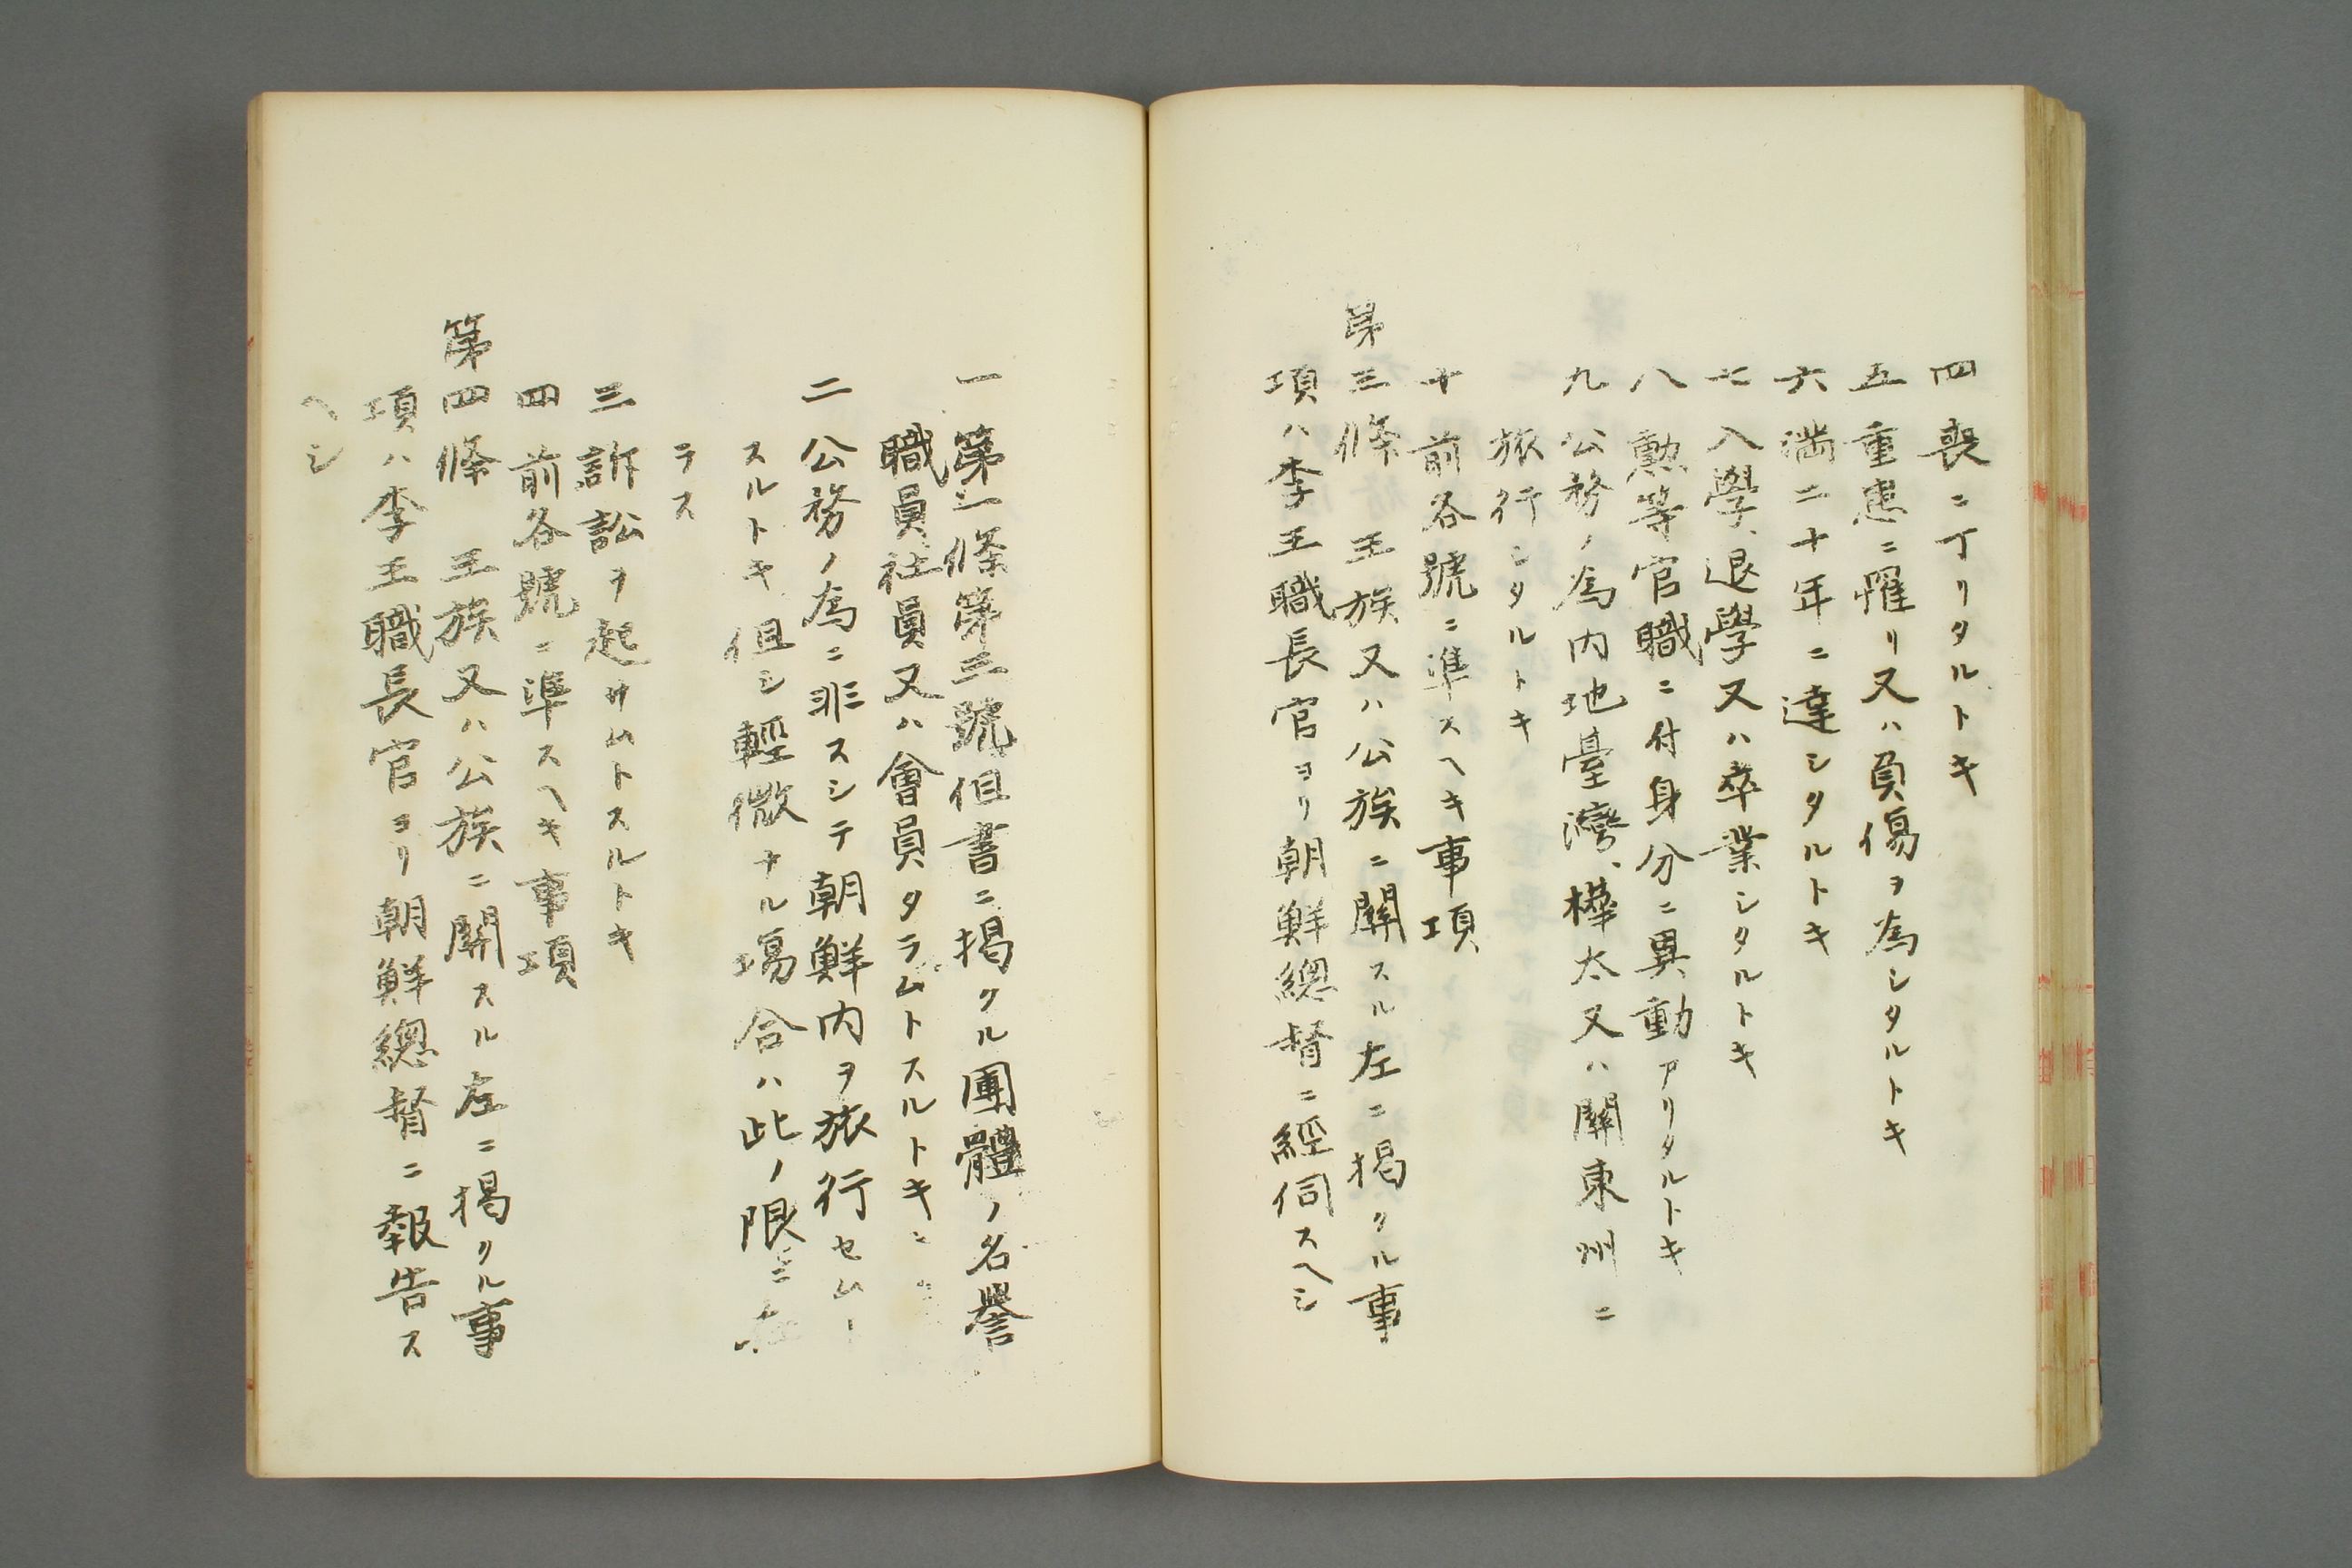 四 喪ニ丁リタルトキ
五 重患ニ罹リ又ハ負傷ヲ爲シタルトキ
六 満二十年ニ達シタルトキ
七 入學、退學又ハ卒業シタルトキ
八 勲等官職ニ付身分ニ異動アリタルトキ
九 公務ノ爲内地臺灣、樺太又ハ關東州ニ
旅行シタルトキ
十 前各號ニ準スヘキ事項
第三條 王族又ハ公族ニ關スル左ニ掲クル事
項ハ李王職長官ヨリ朝鮮總督ニ經伺スヘシ
一 第一條第三號但書ニ掲クル團體ノ名譽
職員社員又ハ會員タラムトスルトキ
二 公務ノ爲ニ非スシテ朝鮮内ヲ旅行セム
スルトキ但シ輕微ナル場合ハ此ノ限ニ在
ラス
三 訴訟ヲ起サムトスルトキ
四 前各號ニ準スヘキ事項
第四條 王族又ハ公族ニ關スル左ニ掲クル事
項ハ李王職長官ヨリ朝鮮總督ニ報告ス
ヘシ